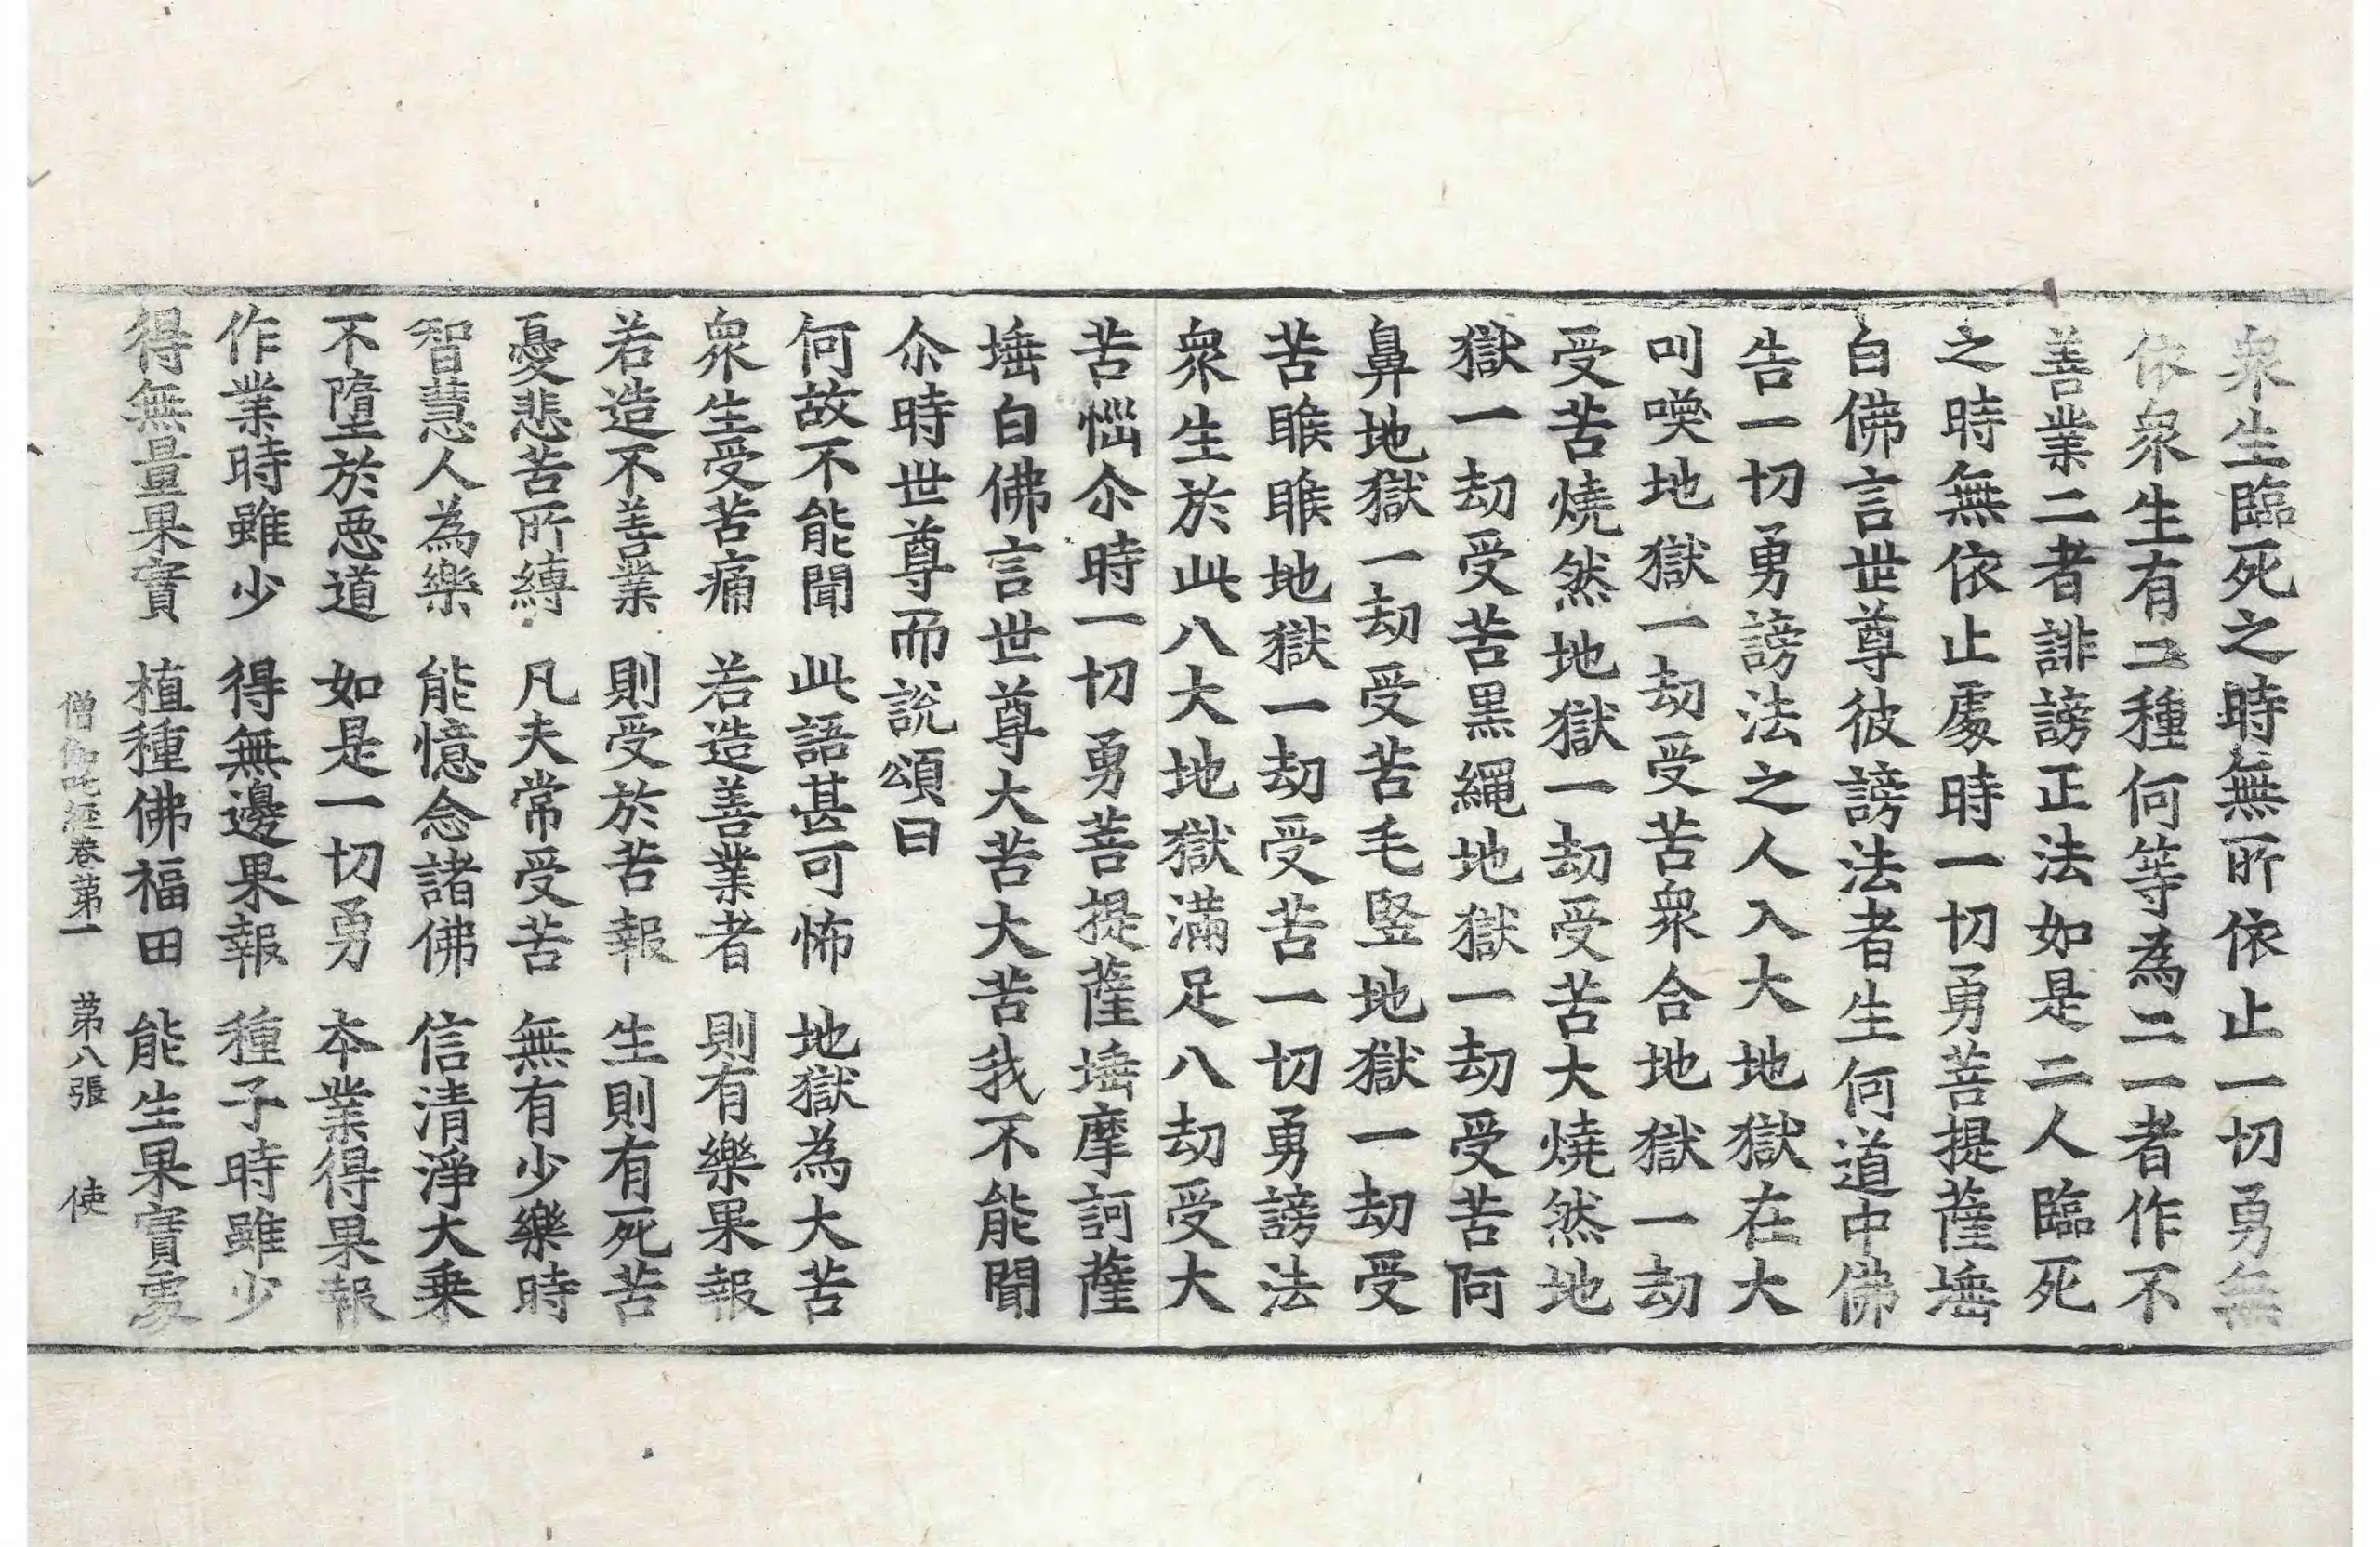 衆生臨死之時無所依止一切勇無
依衆生有二種何等為二一者作不
善業二者誹謗正法如是二人臨死
之時無依止處時一切勇菩提薩埵
白佛言世尊彼謗法者生何道中佛
告一切勇謗法之人入大地獄在大
叫喚地獄一劫受苦衆合地獄一劫
受苦燒然地獄一劫受苦大燒然地
獄一劫受苦黒繩地獄一劫受苦阿
鼻地獄一劫受苦毛竪地獄一劫受
苦睺睺地獄一劫受苦一切勇謗法
衆生於此八大地獄滿足八劫受大
苦惱尒時一切勇菩提薩埵摩訶薩
埵白佛言世尊大苦大苦我不能聞
尒時世尊而說頌曰
何故不能聞　此語甚可怖　地獄為大苦
衆生受苦痛　若造善業者　則有樂果報
若造不善業　則受於苦報　生則有死苦
憂悲苦所縛　凡夫常受苦　無有少樂時
智慧人為樂　能憶念諸佛　信清淨大乗
不墮於惡道　如是一切勇　本業得果報
作業時雖少　得無邊果報　種子時雖少
得無量果實　植種佛福田　能生果實處
僧伽吒經卷第一　第八張　使